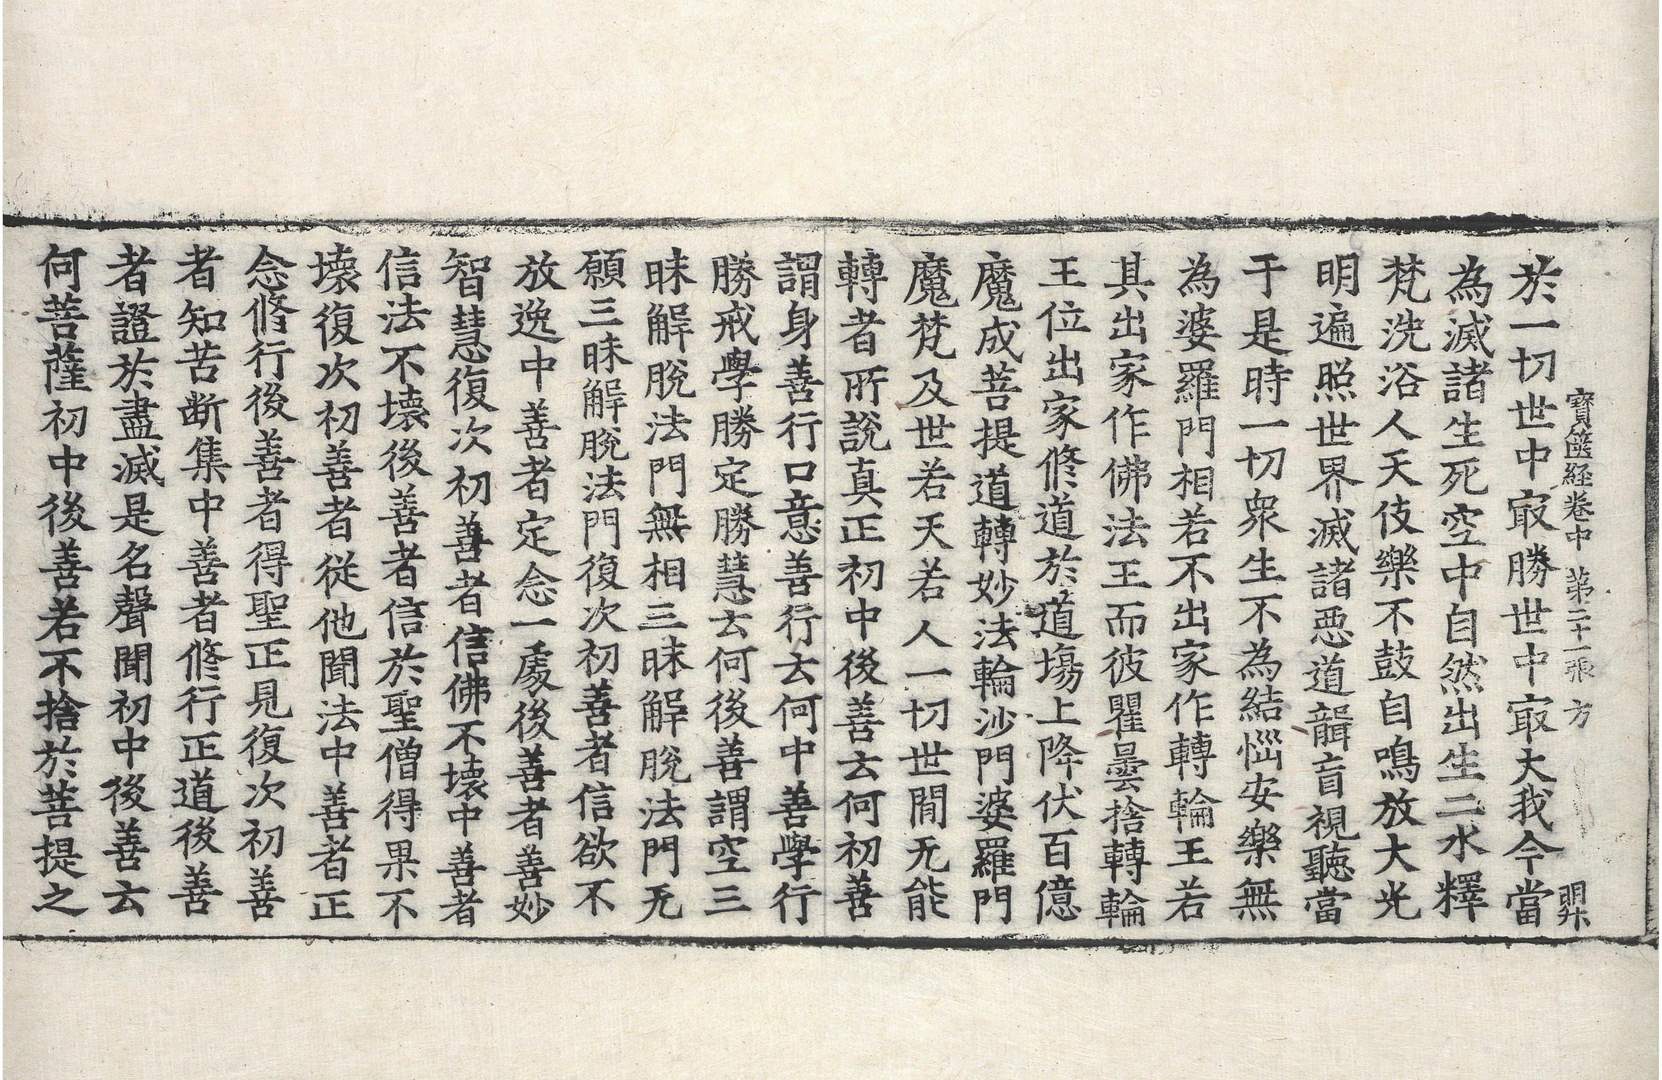 寶篋經卷中 第二十一張 方
於一切世中㝡勝世中㝡大我今當
為滅諸生死空中自然出生二水釋
梵洗浴人天伎樂不鼓自鳴放大光
明遍照世界滅諸惡道聾盲視聽當
于是時一切衆生不為結惱安樂無
為婆羅門相若不出家作轉輪王若
其出家作佛法王而彼瞿曇捨轉輪
王位出家修道於道場上降伏百億
魔成菩提道轉妙法輪沙門婆羅門
魔梵及世若天若人一切世間无能
轉者所說真正初中後善云何初善
謂身善行口意善行云何中善學行
勝戒學勝定勝慧云何後善謂空三
昧解脫法門無相三昧解脫法門无
願三昧解脫法門復次初善者信欲不
放逸中善者定念一處後善者善妙
智慧復次初善者信佛不壞中善者
信法不壞後善者信於聖僧得果不
壞復次初善者從他聞法中善者正
念修行後善者得聖正見復次初善
者知苦斷集中善者修行正道後善
者證於盡滅是名聲聞初中後善云
何菩薩初中後善若不捨於菩提之